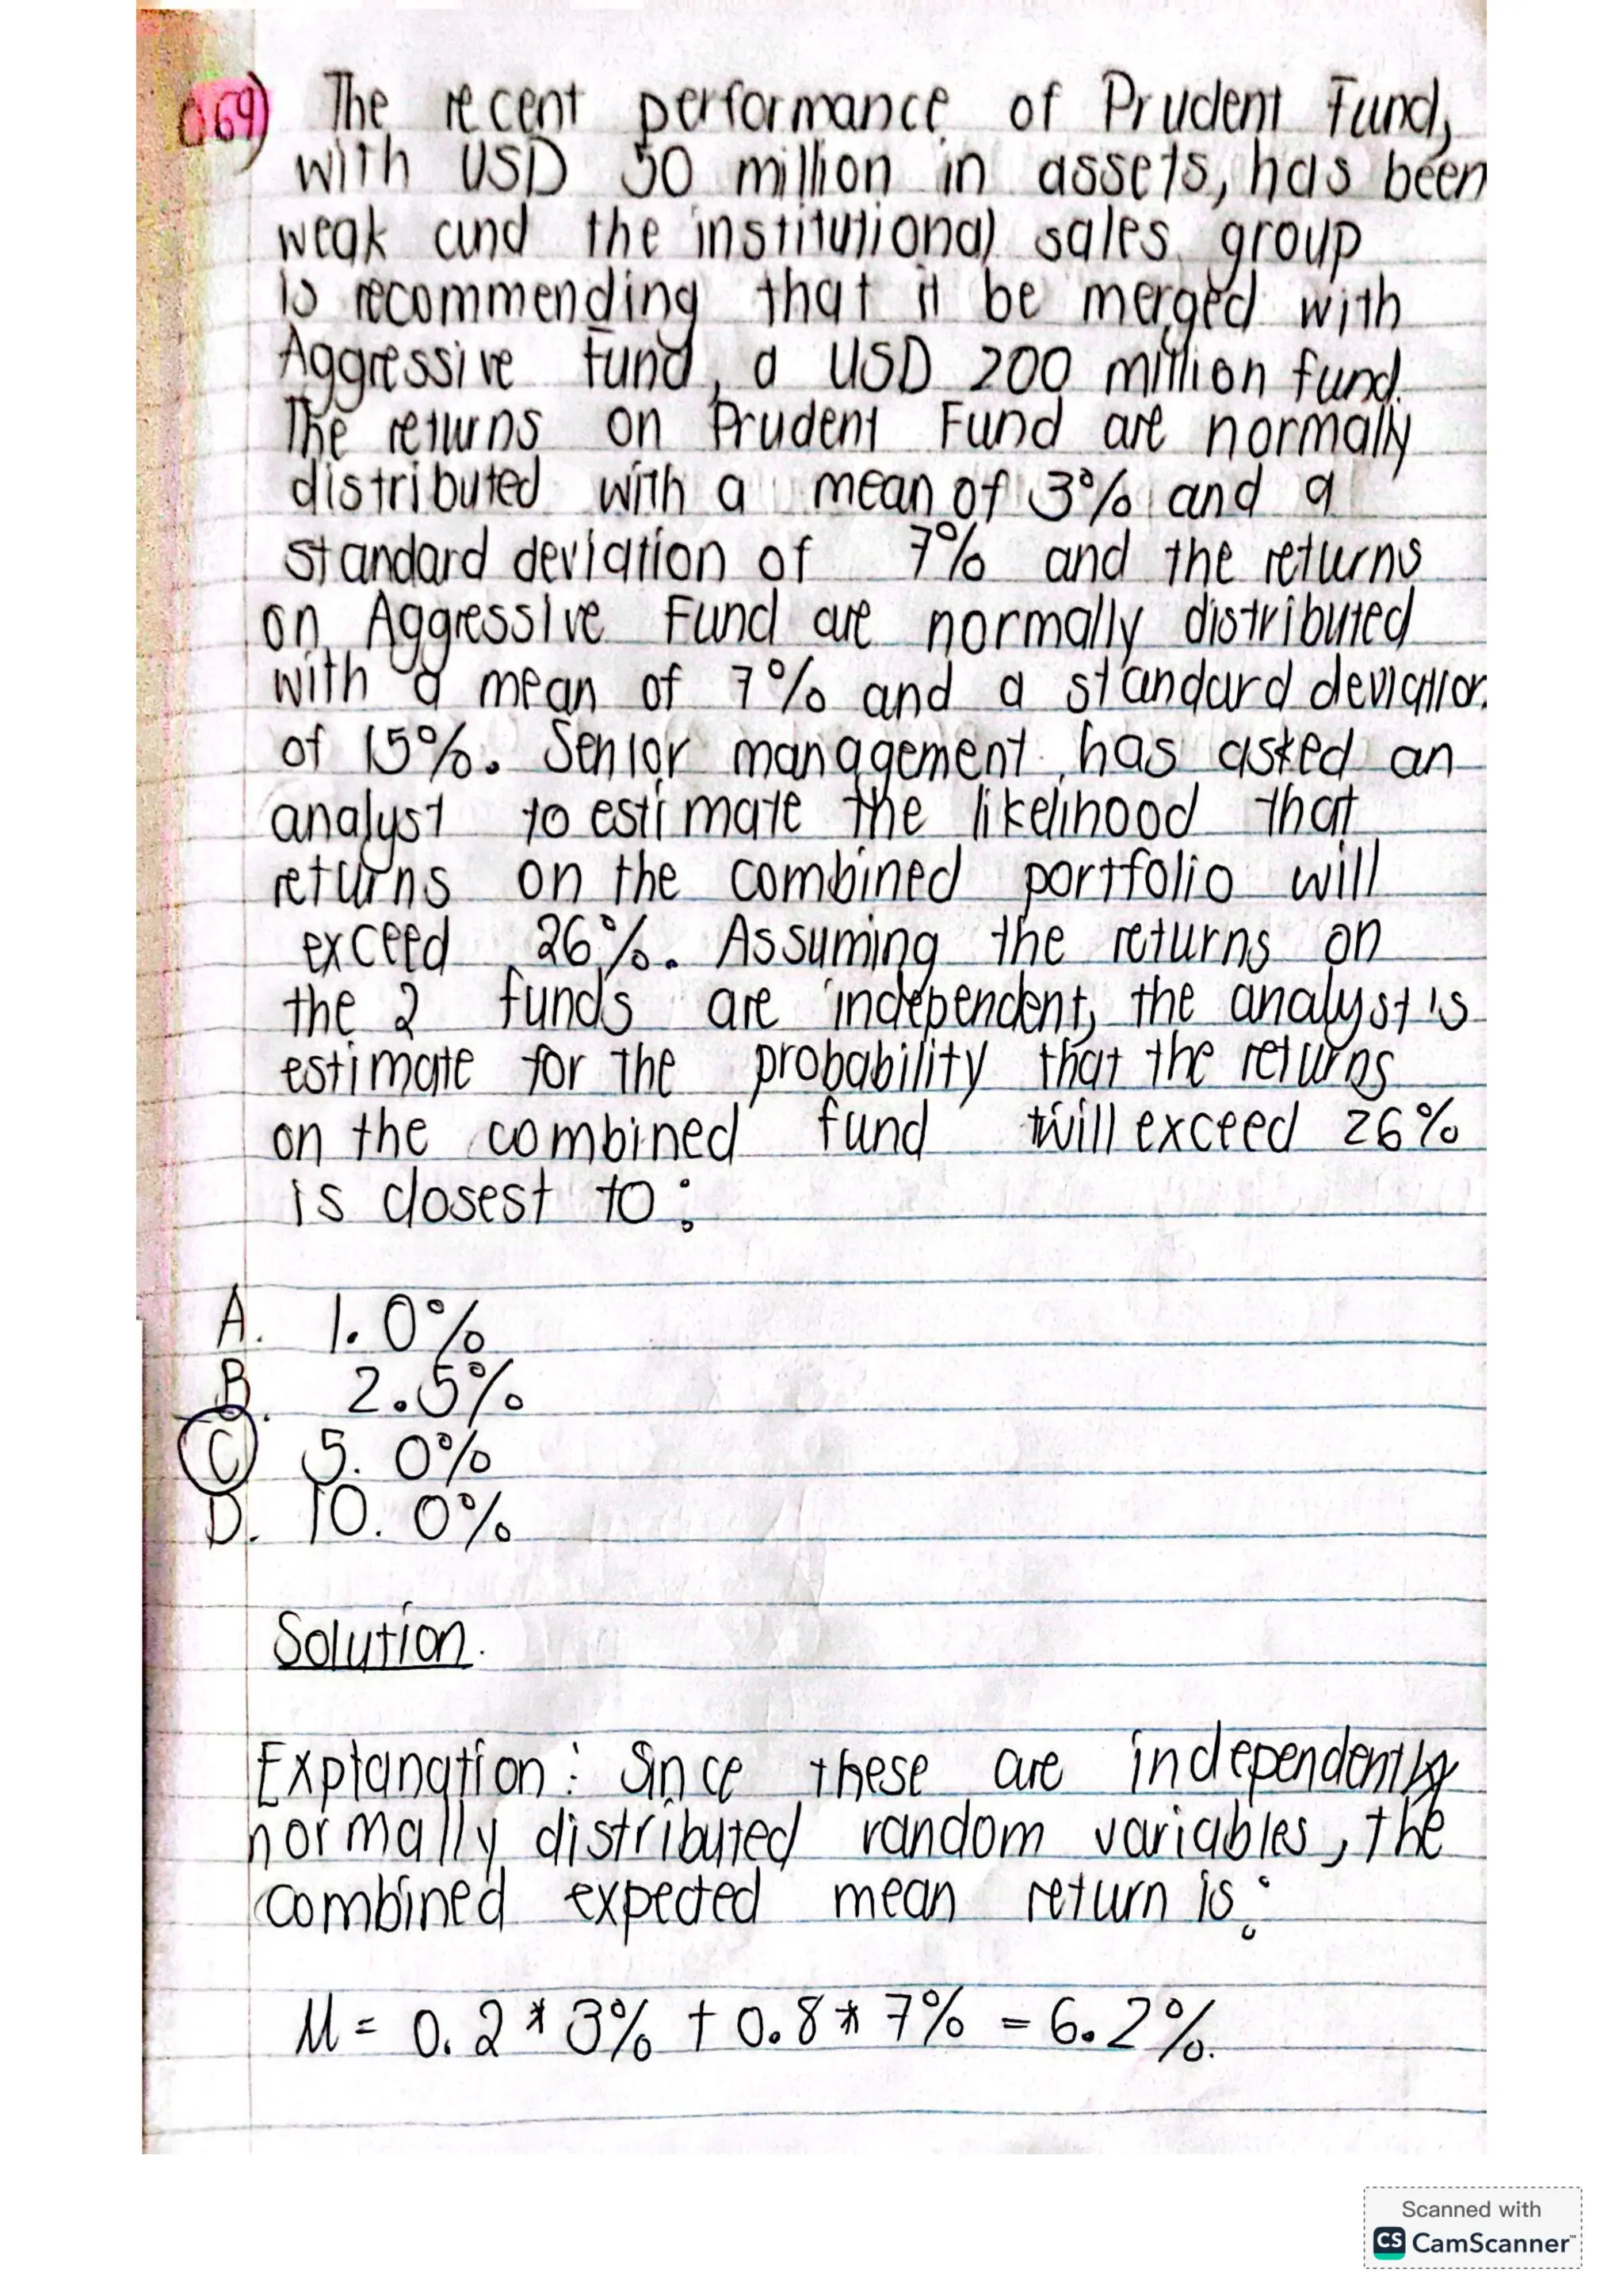 Q69) The recent performance of Prudent Fund,
with USD 50 million in assets, has been
weak and the institutional sales group
is recommending that it be merged with
Aggressive Fund, a USD 200 million fund.
The returns on Prudent Fund are normally
distributed with a mean of 3% and a
standard deviation of 7% and the returns
on Aggressive Fund are normally distributed
with a mean of 7% and a standard deviation
of 15%. Senior management has asked an
analyst to estimate the likelihood that
returns on the combined portfolio will
exceed 26%. Assuming the returns on
the 2 funds are independent, the analyst is
estimate for the probability that the returns
on the combined fund will exceed 26%
is closest to:
A. 1.0%
B. 2.5%
C 5.0%
D. 10.0%
Solution.
Explanation: Since these are independently
normally distributed random variables, the
combined expected mean return is:
M = 0.2 * 3% + 0.8 * 7% = 6.2%.
Scanned with
CS CamScanner™